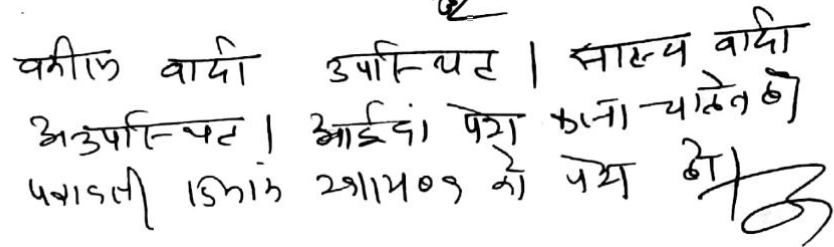 वकील वादी उपस्थित । साक्ष्य वादी
अनुपस्थित । आईंदा पेश करना चाहते हो
पत्रावली दिनांक को पेश हो ।